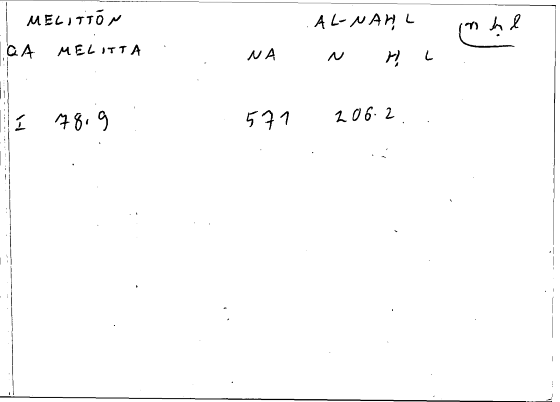 MELITTŌN AL-NAḤL nḥl
QA MELITTA NA NḤL
I 78.9 571 206.2